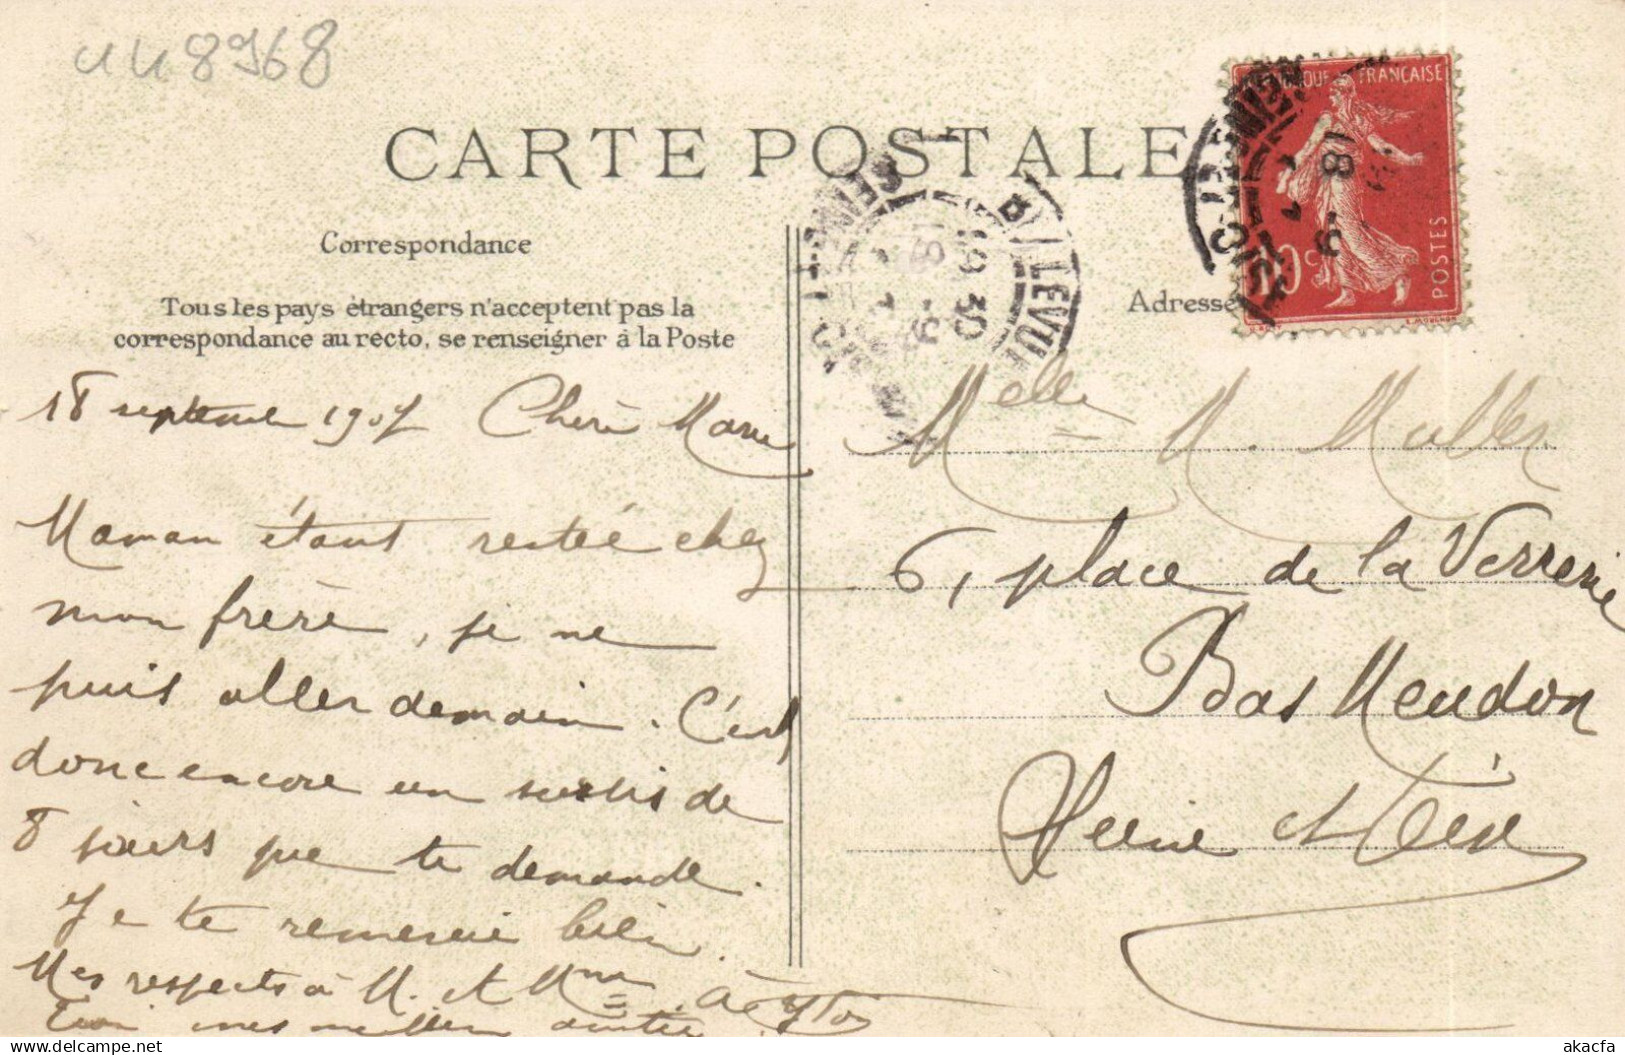 448968
CARTE POSTALE
RÉPUBLIQUE FRANÇAISE
10 c
POSTES
BELLEVUE
18 - 9
Correspondance
Adresse
Tous les pays étrangers n'acceptent pas la
correspondance au recto, se renseigner à la Poste
18 septembre 1907 Chère Marie
Maman étant restée chez
mon frère, je ne
puis aller demain. C'est
donc encore un sursis de
8 jours que te demande.
Je te remercie bien
Mes respects à M. et Mme
mes meilleures amitiés
Melle M. Muller
6, place de la Verrerie
Bas Meudon
Seine et Oise
akpool.co.uk
akacfa